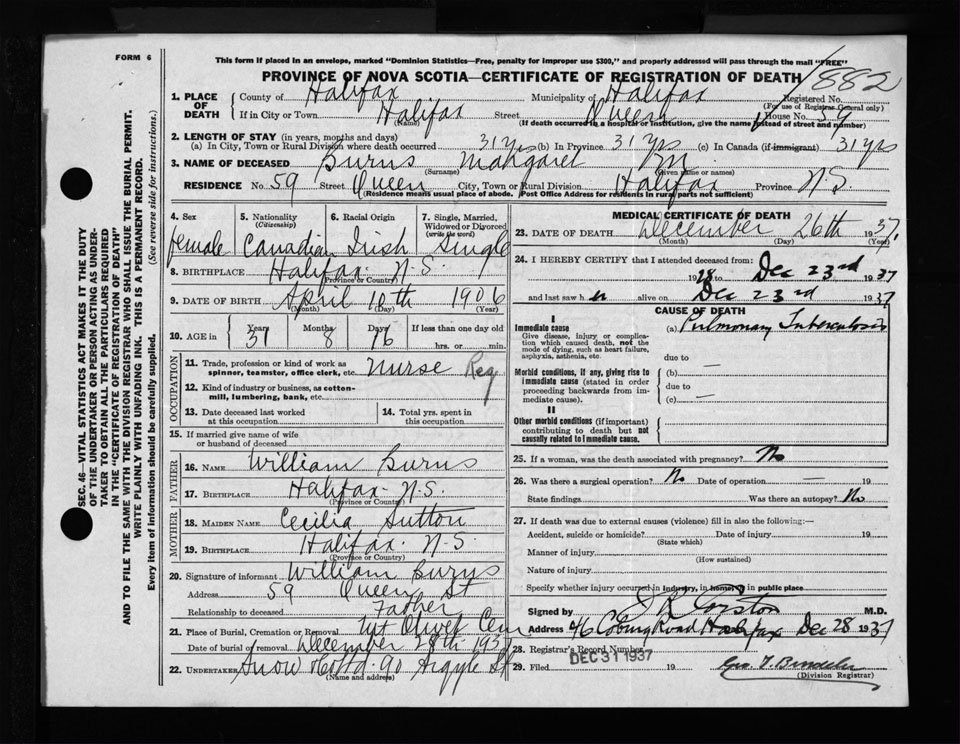 FORM 6
This form if placed in an envelope, marked "Dominion Statistics—Free, penalty for improper use $300," and properly addressed will pass through the mail "FREE"
PROVINCE OF NOVA SCOTIA—CERTIFICATE OF REGISTRATION OF DEATH
1882
1. PLACE OF DEATH
County of Halifax Municipality of Halifax Registered No.
(For use of Registrar General only)
If in City or Town Halifax Street Queen House No. 59
(Name) (If death occurred in a hospital or institution, give the name instead of street and number)
2. LENGTH OF STAY (in years, months and days)
(a) In City, Town or Rural Division where death occurred 31 yrs (b) In Province 31 yrs (c) In Canada (if immigrant) 31 yrs
3. NAME OF DECEASED Burns Margaret M.
(Surname) (Given name or names)
RESIDENCE No. 59 Street Queen City, Town or Rural Division Halifax Province N.S.
(Residence means usual place of abode. Post Office Address for residents in rural parts not sufficient)
4. Sex female
5. Nationality (Citizenship) Canadian
6. Racial Origin Irish
7. Single, Married, Widowed or Divorced (write the word) Single
8. BIRTHPLACE Halifax. N.S.
(Province or Country)
9. DATE OF BIRTH April 10th 1906
(Month) (Day) (Year)
10. AGE in Years 31 Months 8 Days 16 If less than one day old
hrs. or min.
OCCUPATION
11. Trade, profession or kind of work as spinner, teamster, office clerk, etc. Nurse Reg
12. Kind of industry or business, as cotton-mill, lumbering, bank, etc.
13. Date deceased last worked at this occupation
14. Total yrs. spent in this occupation
15. If married give name of wife or husband of deceased
FATHER
16. NAME William Burns
17. BIRTHPLACE Halifax- N.S.
(Province or Country)
MOTHER
18. MAIDEN NAME Cecilia Sutton
19. BIRTHPLACE Halifax. N.S.
(Province or Country)
20. Signature of informant William Burns
Address 59 Queen St
Relationship to deceased Father
21. Place of Burial, Cremation or Removal Mt Olivet Cem
Date of burial or removal December 28th 1937
22. UNDERTAKER Snow & Co Ltd. 90 Argyle St
(Name and address)
MEDICAL CERTIFICATE OF DEATH
23. DATE OF DEATH December 26th 1937
(Month) (Day) (Year)
24. I HEREBY CERTIFY that I attended deceased from:
to Dec 23rd 1937
and last saw her alive on Dec 23rd 1937
CAUSE OF DEATH
I
Immediate cause
Give disease, injury or complication which caused death, not the mode of dying, such as heart failure, asphyxia, asthenia, etc.
(a) Pulmonary Tuberculosis
due to
Morbid conditions, if any, giving rise to immediate cause (stated in order proceeding backwards from immediate cause).
(b) —
due to
(c) —
II
Other morbid conditions (if important) contributing to death but not causally related to immediate cause.
25. If a woman, was the death associated with pregnancy? No
26. Was there a surgical operation? No Date of operation — 19
State findings Was there an autopsy? No
27. If death was due to external causes (violence) fill in also the following:—
Accident, suicide or homicide? Date of injury 19
(State which)
Manner of injury
(How sustained)
Nature of injury
Specify whether injury occurred in industry, in home, or in public place
Signed by M.D.
Address 46 Coburg Road Halifax Dec 28 1937
28. Registrar's Record Number
29. Filed DEC 31 1937 19
(Division Registrar)
SEC. 46—VITAL STATISTICS ACT MAKES IT THE DUTY
OF THE UNDERTAKER OR PERSON ACTING AS UNDER-
TAKER TO OBTAIN ALL THE PARTICULARS REQUIRED
IN THE "CERTIFICATE OF REGISTRATION OF DEATH"
AND TO FILE THE SAME WITH THE DIVISION REGISTRAR WHO SHALL ISSUE THE BURIAL PERMIT.
WRITE PLAINLY WITH UNFADING INK. THIS IS A PERMANENT RECORD.
Every item of information should be carefully supplied. (See reverse side for instructions.)